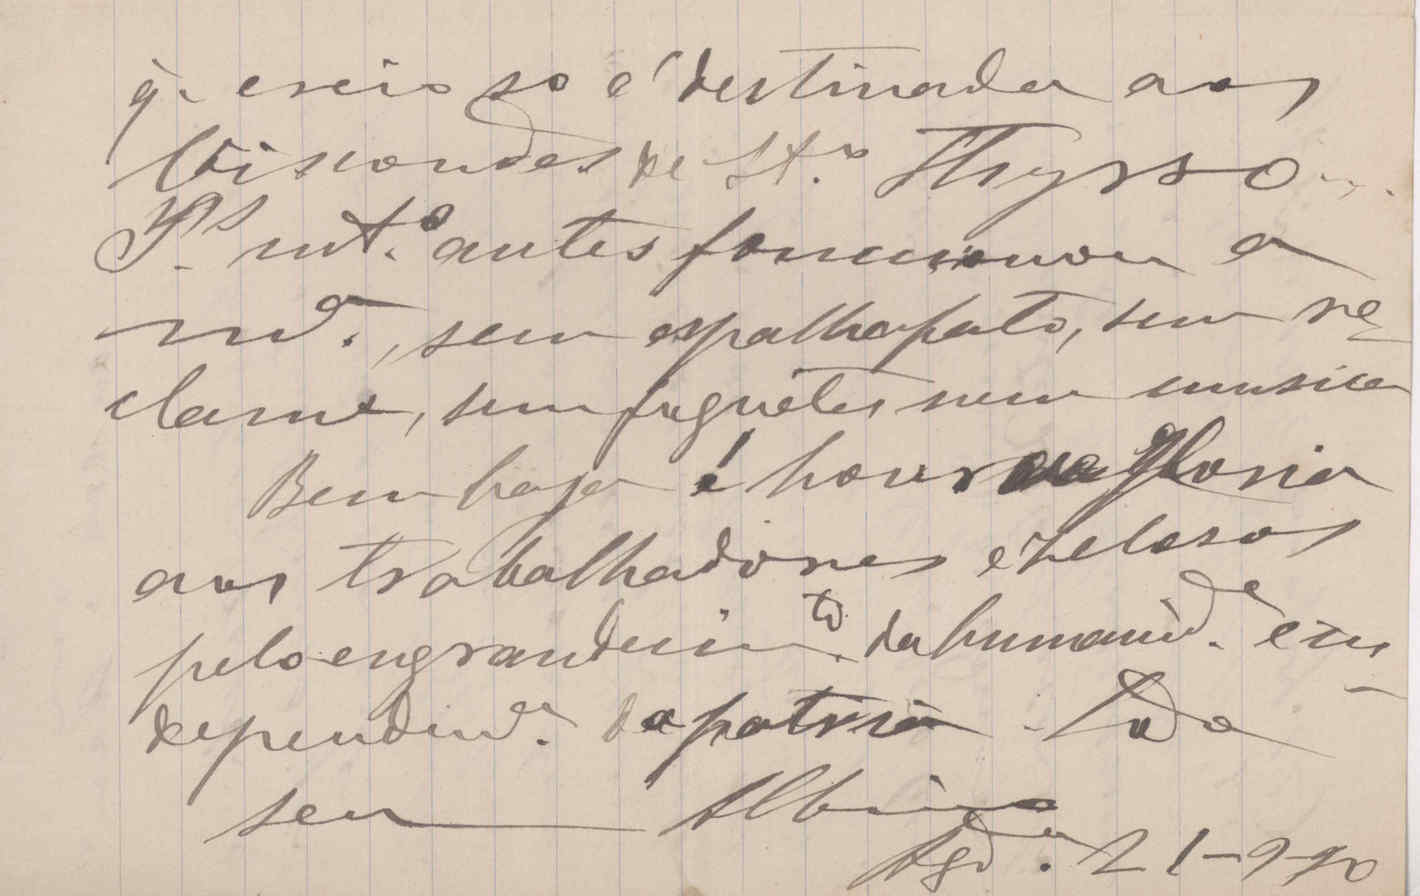 q. creio só é destinada aos
Viscondes de St.º Thyrso
Ps. mt.º antes funccionou a
m.ª, sem espalhafato, sem re-
clame, sem foguêtes nem musica
Bem haja é honra e gloria
aos trabalhadores e zelosos
pelo engrandecim.to da humanid.e e in-
dependen.ª da patria. Todo
seu Albino
Agd.ª 21-9-90